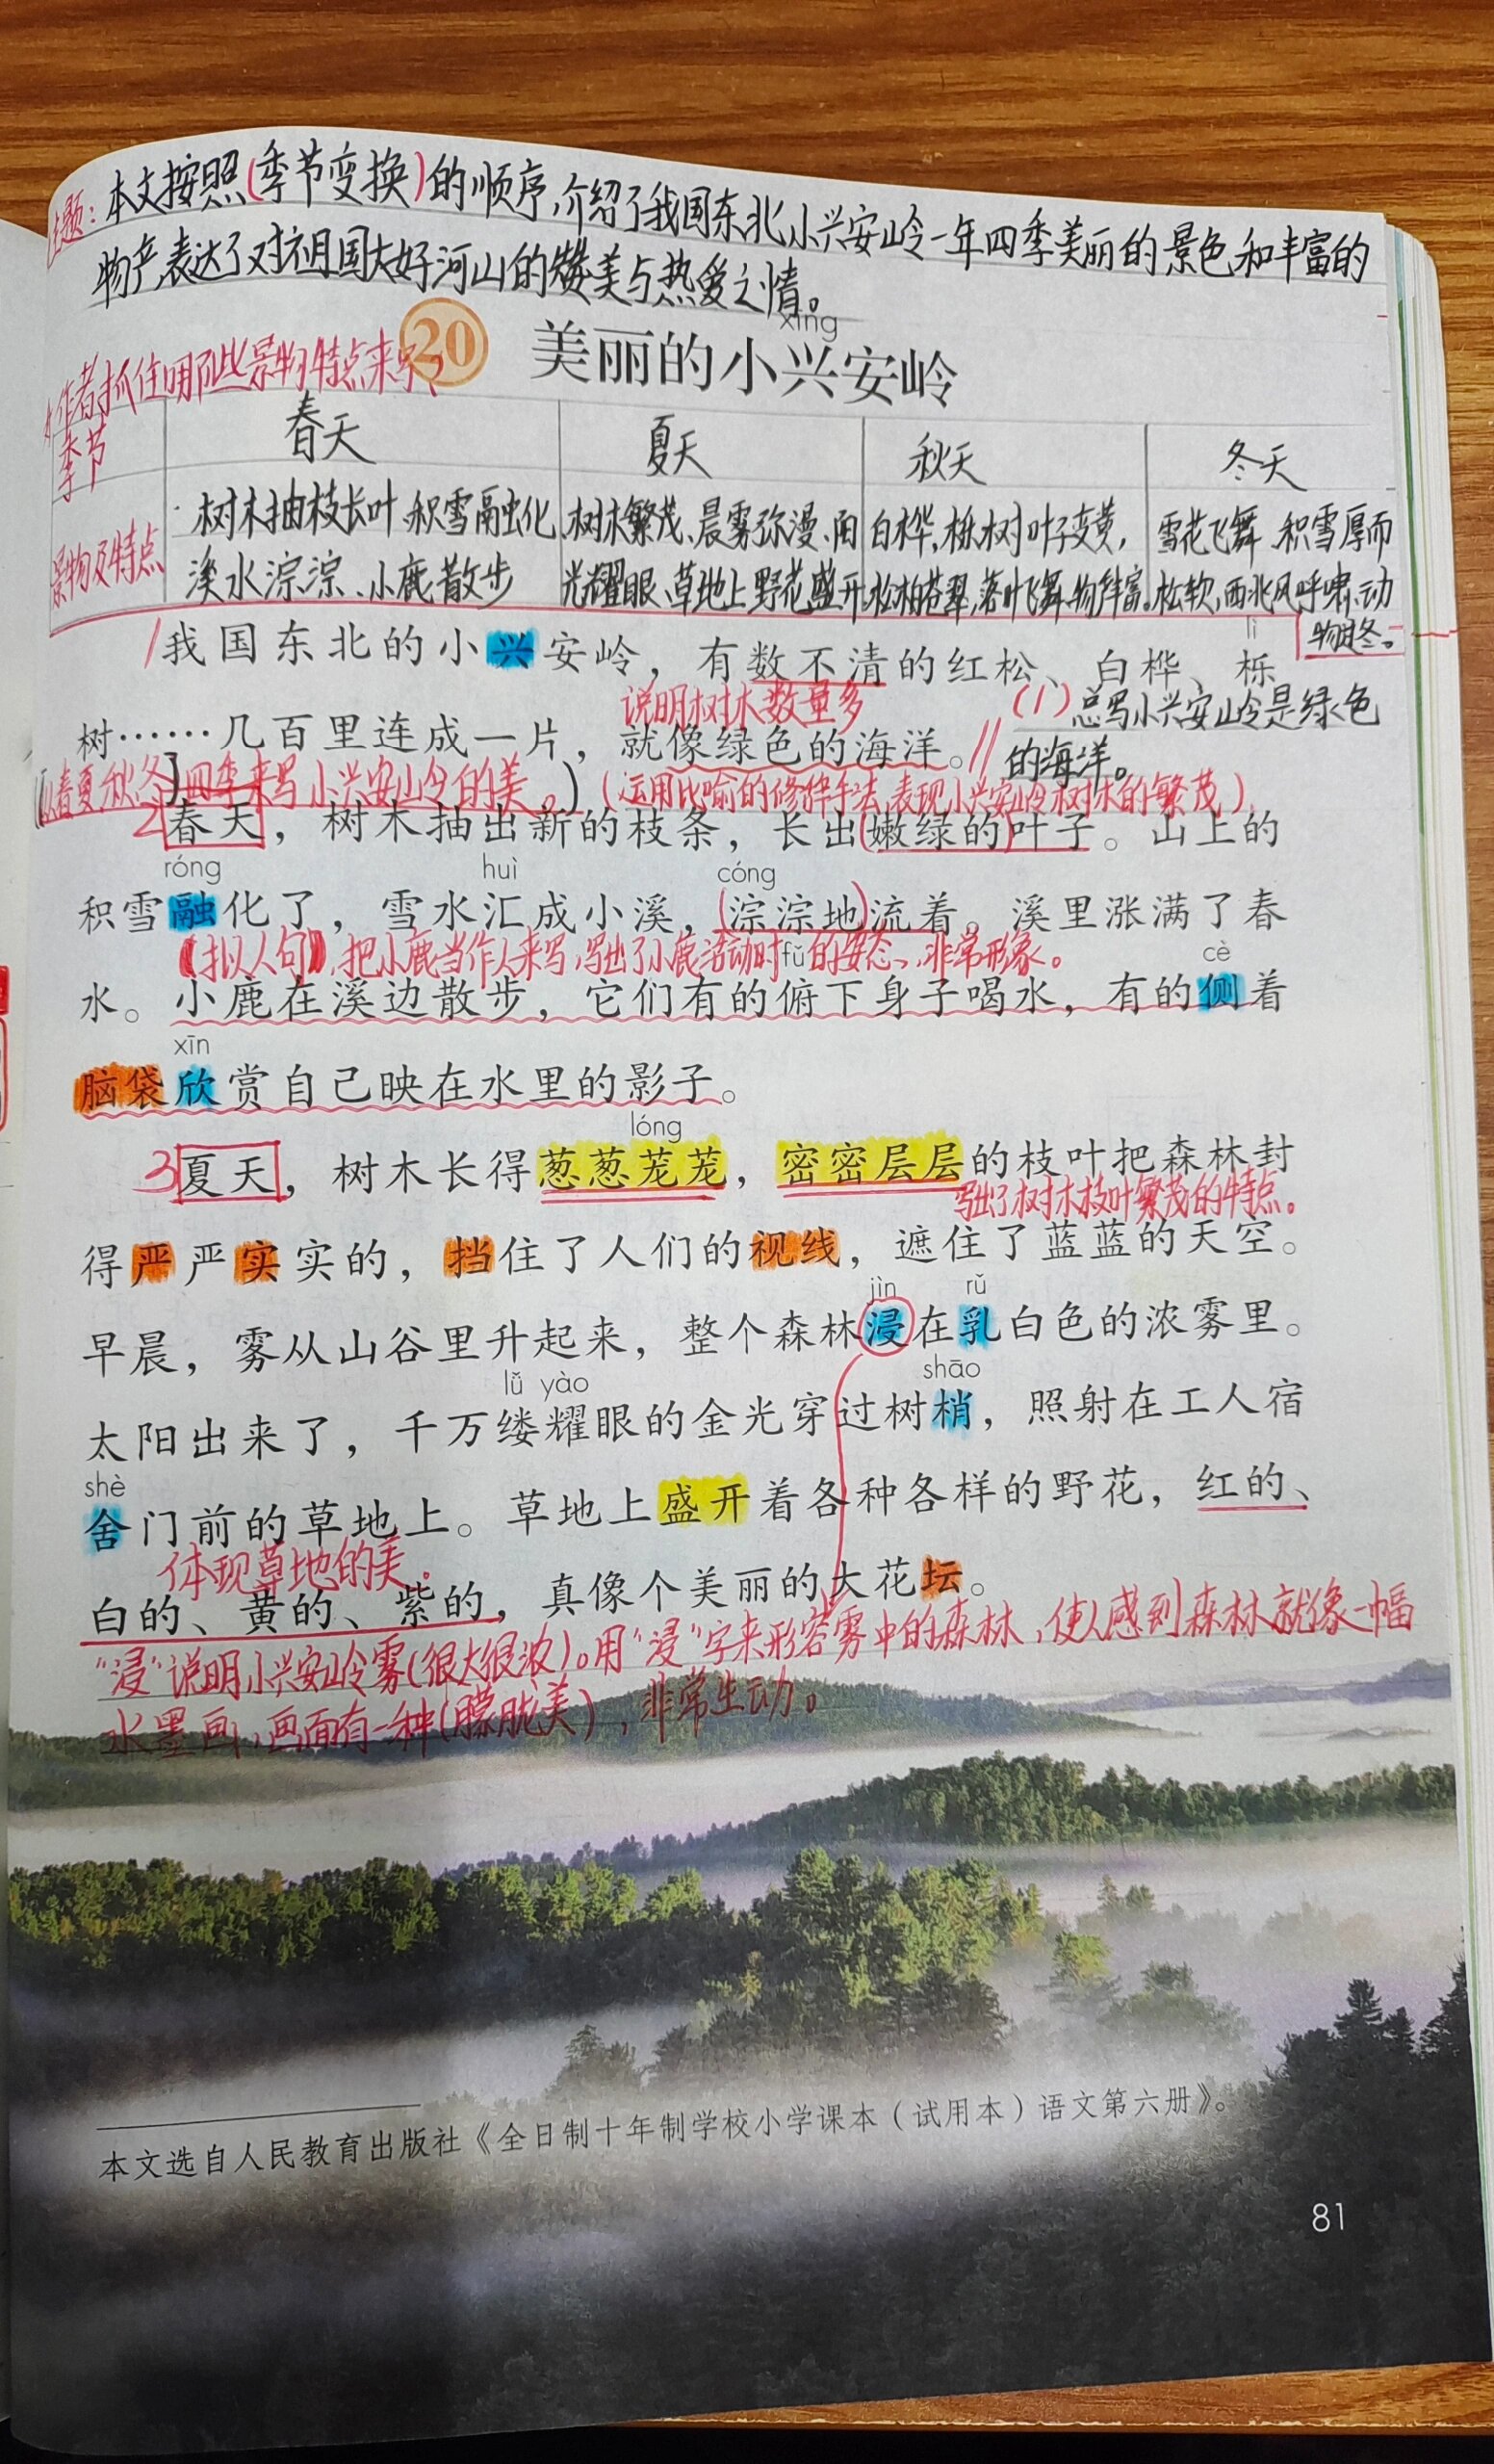 主题：本文按照(季节变换)的顺序,介绍了我国东北小兴安岭一年四季美丽的景色和丰富的
物产,表达了对祖国大好河山的赞美与热爱之情。
xīng
20 美丽的小兴安岭
作者抓住哪些景物特点来写？
季节 春天 夏天 秋天 冬天
景物及特点
树木抽枝长叶、积雪融化 树木繁茂、晨雾弥漫、阳 白桦,栎树叶子变黄, 雪花飞舞、积雪厚而
溪水淙淙、小鹿散步 光耀眼、草地上野花盛开 松柏苍翠,落叶飞舞,物产丰富。 松软,西北风呼啸、动
物过冬。
lì
1我国东北的小兴安岭，有数不清的红松、白桦、栎
说明树木数量多 (1)总写小兴安岭是绿色
树……几百里连成一片，就像绿色的海洋。// 的海洋。
[春夏秋冬]四季来写小兴安岭的美。) (运用比喻的修辞手法,表现小兴安岭树木的繁茂)
2春天，树木抽出新的枝条，长出(嫩绿的)叶子。山上的
róng huì cóng
积雪融化了，雪水汇成小溪，(淙淙地)流着。溪里涨满了春
《拟人句》,把小鹿当作人来写,写出了小鹿活动时的姿态、非常形象。
fǔ cè
水。小鹿在溪边散步，它们有的俯下身子喝水，有的侧着
xīn
脑袋欣赏自己映在水里的影子。
lóng
3夏天，树木长得葱葱茏茏，密密层层的枝叶把森林封
写出了树木枝叶繁茂的特点。
得严严实实的，挡住了人们的视线，遮住了蓝蓝的天空。
jìn rǔ
早晨，雾从山谷里升起来，整个森林浸在乳白色的浓雾里。
lǚ yào shāo
太阳出来了，千万缕耀眼的金光穿过树梢，照射在工人宿
shè
舍门前的草地上。草地上盛开着各种各样的野花，红的、
体现草地的美。
白的、黄的、紫的，真像个美丽的大花坛。
"浸"说明小兴安岭雾(很大很浓)。用"浸"字来形容雾中的森林,使人感到森林就像一幅
水墨画,画面有一种(朦胧美),非常生动。
本文选自人民教育出版社《全日制十年制学校小学课本（试用本）语文第六册》。
81